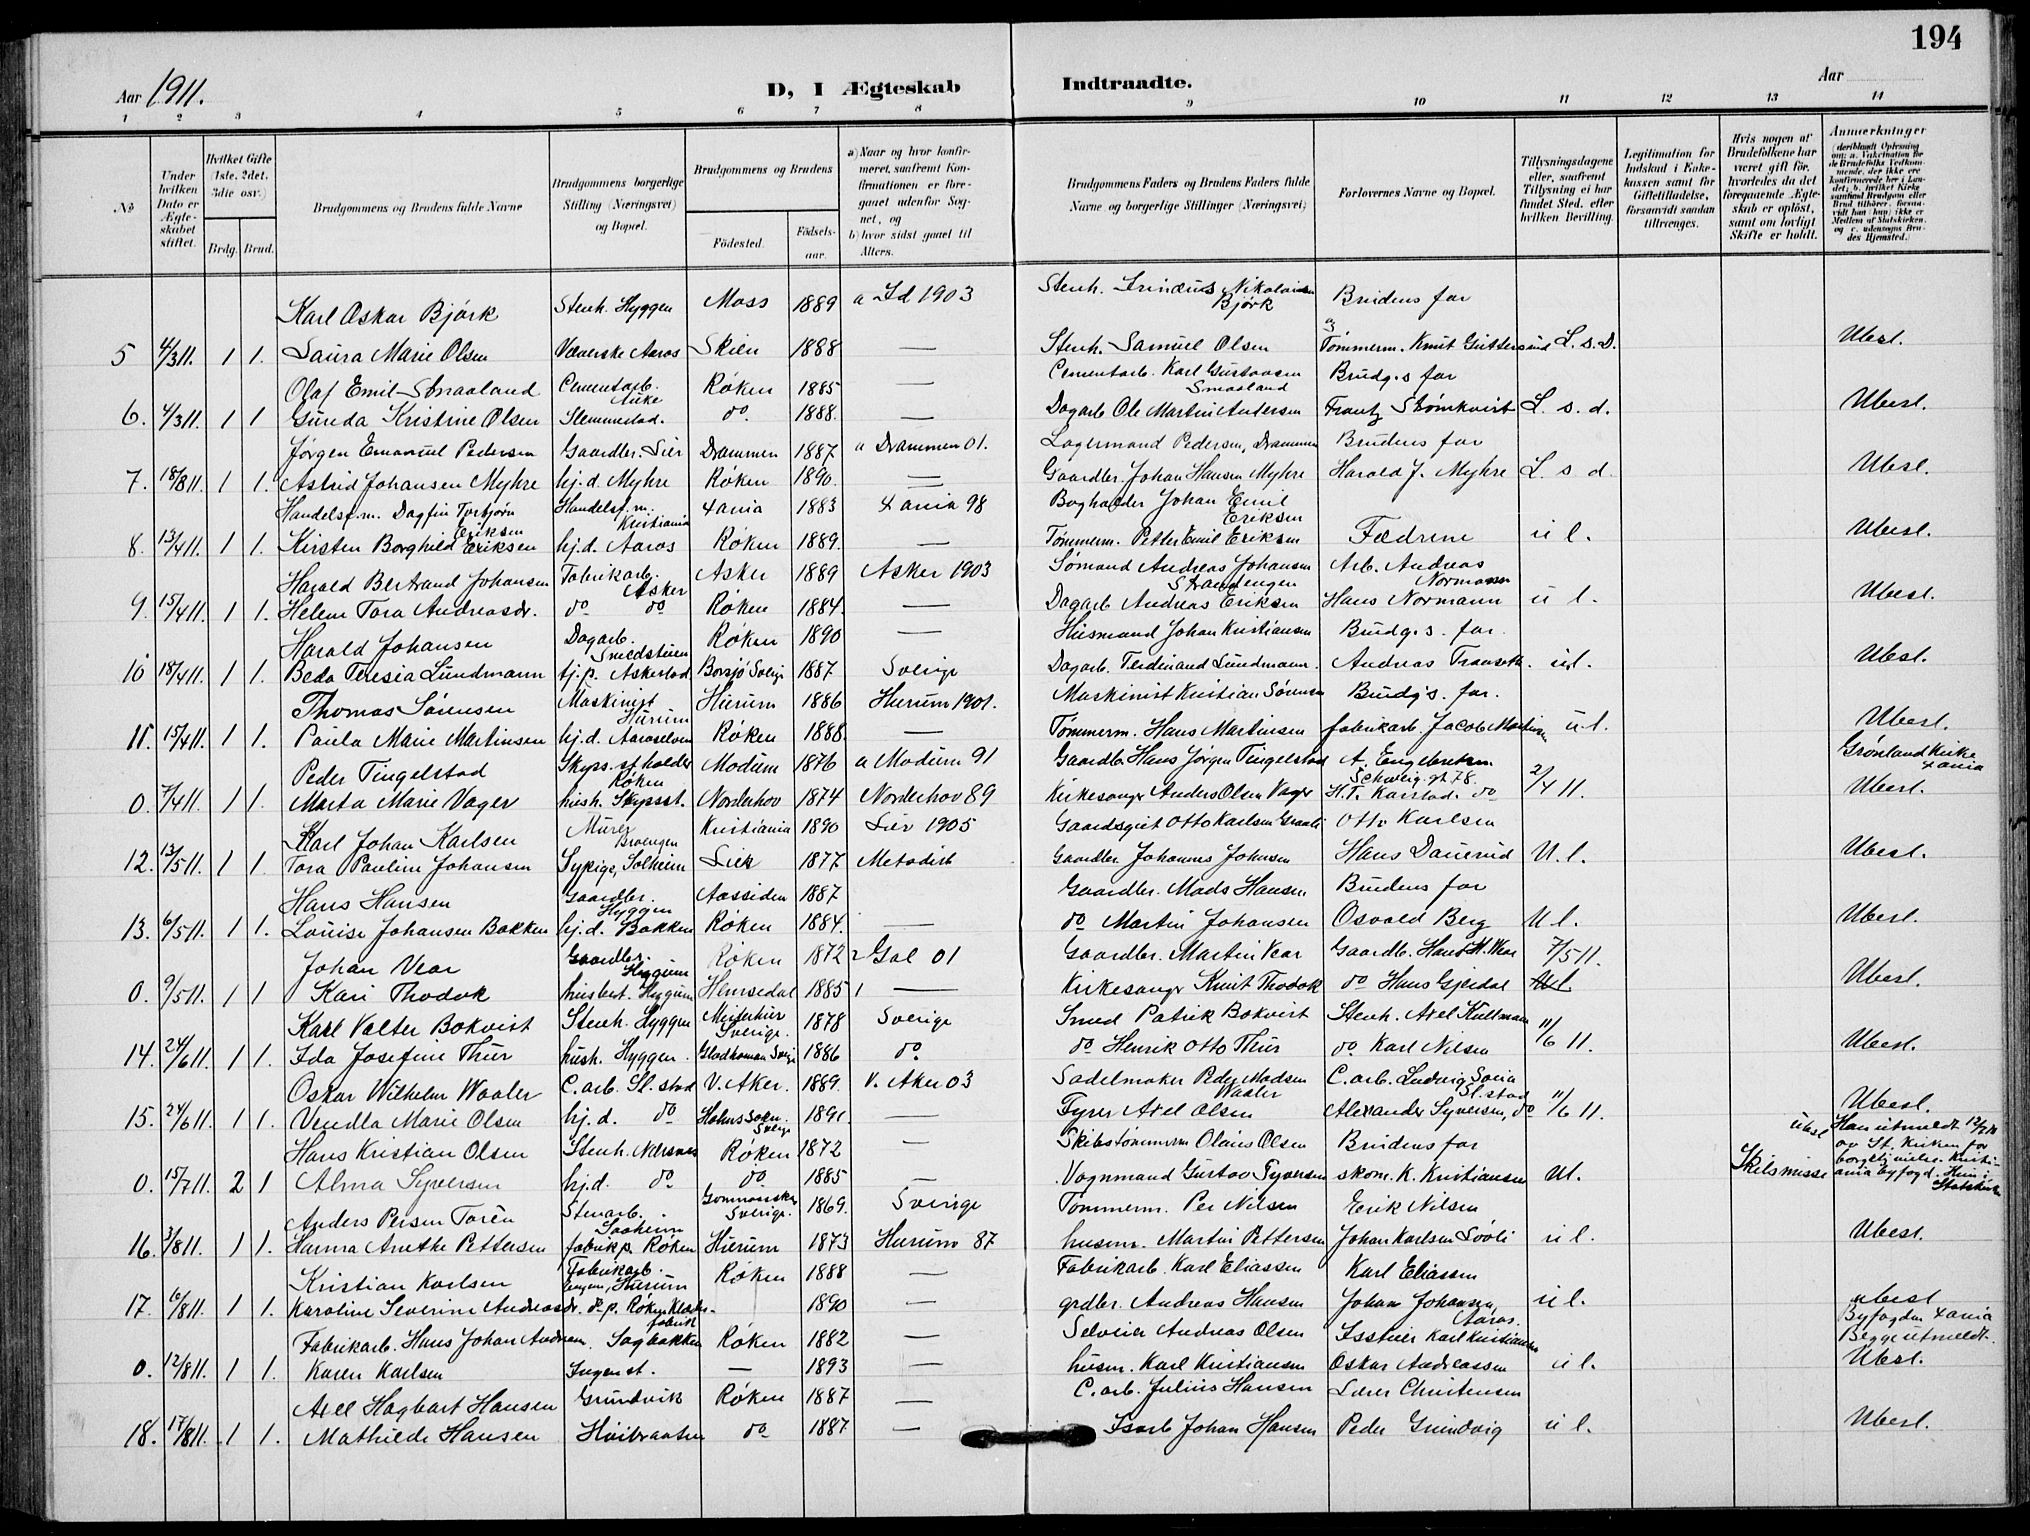 194
Aar 1911. D, I Ægteskab Indtraadte. Aar
1 2 3 4 5 6 7 8 9 10 11 12 13 14
№
Under hvilken Dato er Ægteskabet stiftet.
Hvilket Gifte (1ste, 2det, 3die osv.)
Brdg. Brud.
Brudgommens og Brudens fulde Navne
Brudgommens borgerlige Stilling (Næringsvei) og Bopæl.
Brudgommens og Brudens
Fødested. Fødselsaar.
a) Naar og hvor konfirmeret, saafremt Konfirmationen er foregaaet udenfor Sognet, og
b) hvor sidst gaaet til Alters.
Brudgommens Faders og Brudens Faders fulde Navne og borgerlige Stillinger (Næringsvei)
Forlovernes Navne og Bopæl.
Tillysningsdagene eller, saafremt Tillysning ei har fundet Sted, efter hvilken Bevilling.
Legitimation for Indskud i Enkekassen samt for Giftetilladelse, forsaavidt saadan tiltrænges.
Hvis nogen af Brudefolkene har været gift før, hvorledes da det foregaaende Ægteskab er opløst, samt om lovligt Skifte er holdt.
Anmærkninger (deriblandt Oplysning om: a. Vakcination for de Brudefolks Vedkommende, der ikke ere konfirmerede her i Landet; b. hvilket Kirkesamfund Brudgom eller Brud tilhører, forsaavidt han (hun) ikke er Medlem af Statskirken, og c. udensogns Brudes Hjemsted.)
Karl Oskar Bjørk Stenh. Hyggen Moss 1889 a Id 1903 Stenh. Nikolaisen Bjørk Brudens far
5 4/3 11. 1 1. Laura Marie Olsen Væverske Aaros Skien 1888 — Stenh. Samuel Olsen og Tømmerm. Knut Guttersrud L. s. D. Ubesl.
Olaf Emil Smaaland Cementarb. Røken 1885 — Cementarb. Karl Gustavsen Smaaland Brudg.s far
6. 4/3 11. 1 1 Gunda Kristine Olsen Slemmestad. do. 1888. — Dagarb. Ole Martin Andersen Frantz Strømkvist L. s. d. Ubesl.
Jørgen Emanuel Pedersen Gaardbr. Lier Drammen 1887 a Drammen 01. Lagermand Pedersen, Drammen Brudens far
7. 18/3 11. 1 1. Astrid Johansen Myhre hj. d. Myhre Røken 1890. — Gaardbr. Johan Hansen Myhre Harald J. Myhre L s d. Ubesl.
Handelsf.m. Dagfin Torbjørn Eriksen Handelsf.m. Kristiania Xania 1883 Xania 98 Bogholder Johan Emil Eriksen
8. 13/4 11. 1 1. Kirsten Borghild Eriksen hj. d. Aaros Røken 1889. — Tømmerm. Petter Emil Eriksen Fædrene u l. Ubesl.
Harald Bertrand Johansen Fabrikarb. Asker Asker 1889 Asker 1903 Sømand Andreas Johansen Strandengen Arb. Andreas Normann
9. 15/4 11. 1 1. Helene Tora Andreasdr. do do Røken 1884. — Dagarb Andreas Eriksen Hans Normann u l. Ubesl.
Harald Johansen Dagarb. Røken 1890 — Husmand Johan Kristiansen Brudg.s. far.
10 18/4 11. 1 1. Beda Teresia Lundmann tj. p. Askestad Borsjö Sverige 1887 Sverige Dagarb. Ferdinand Lundmann. Andreas ul. Ubesl.
Thomas Sørensen Maskinist Hurum Hurum 1886 Hurum 1901. Maskinist Kristian Sørensen Brudg's. far.
11. 15/4 11. 1 1. Paula Marie Martinsen hj. d. Aaroselven Røken 1888. — Tømmerm. Hans Martinsen fabrikarb. Jacob Martinsen u l. Ubesl.
Peder Tingelstad Skyss.st.holder Røken Modum 1876 a Modum 91 Gaardbr. Hans Jørgen Tingelstad A. Engebretsen Schweig. gt. 78. Grønland Kirke Xania
0. 7/4 11. 1 1. Marta Marie Vager hush. Skysst. Norderhov 1874 Norderhov 89 Kirkesanger Anders Olsen Vager H. T. Karstad. do 2/4 11. Ubesl.
Karl Johan Karlsen Murer Kristiania 1890 Lier 1905 Otto Karlsen Otto Karlsen
12. 13/5 11. 1 1. Tora Pauline Johansen Sypige, Solheim Lier 1877 Metodist Gaardbr. Johannes Johnsen Hans Dauerud U. l. Ubesl.
Hans Hansen Gaardbr. Hyggen Aassiden 1887 Gaardbr. Mads Hansen Brudens far
13. 6/5 11. 1 1. Louise Johansen Bakken hj. d. Bakken Røken 1884. — do Martin Johansen Osvald Berg U l. Ubesl.
Johan Vear Gaardbr. Hyggen Røken 1872 2 Gol 01 Gaardbr. Martin Vear Gaardb. Hans M. Vear 7/5 11.
0. 9/5 11. 1 1 Kari Thodok husbest. Hemsedal 1885 1 — Kirkesanger Knut Thodok do Hans Gjerdal Ubesl.
Karl Valter Bokvist Stenh. Hyggen Sverige. 1878 Sverige Smed Patrik Bokvist Stenh. Axel Kullmann
14. 24/6 11. 1 1. Ida Josefine Thur hush. Hyggen. 1886 do. do Henrik Otto Thur do Karl Nilsen 11/6 11. Ubesl.
Oskar Wilhelm Waaler C. arb. Sl. stad V. Aker. 1889. V. Aker 03 Sadelmaker Peder Madsen Waaler C. arb. Ludvig Sl. stad
15. 24/6 11. 1 1. Vendla Marie Olsen hj. d. do Sverige 1891. — Fyrer Axel Olsen Alexander Syversen, do 11/6 11. Ubesl.
Hans Kristian Olsen Stenh. Nærsnes Røken 1872 — Skibstømmerm Olaus Olsen Brudens far
0. 15/7 11. 2 1 Alma Syversen hj. d. do do. 1885 — Vognmand Gustav Syversen skom. K. Kristiansen Ul. Skilsmisse Ubesl Han utmeldt av St. Kirken for borgerlig vielse. Kristiania byfogd. Hun i Statskirken
Anders Persen Torén Stenarb. Sverige. 1869. Sverige Tømmerm. Per Nilsen Erik Nilsen
16. 3/8 11. 1 1. Hanna Anethe Pettersen fabrikp. Røken Hurum 1873 Hurum 87 husm. Martin Pettersen Johan Karlsen u l. Ubesl.
Kristian Karlsen Fabrikarb. Hurum Røken 1888 — Fabrikarb. Karl Eliassen Karl Eliassen
17. 6/8 11. 1 1. Karoline Severine Andreasdr. Røken fabrik — 1890 — grdbr. Andreas Hansen Johan Johansen, Aaros. u l. ubesl
Fabrikarb. Hans Johan Andresen. Sagbakken Røken 1882 — Selveier Andreas Olsen Karl Kristiansen Byfogden Xania Begge utmeldt.
0. 12/8 11. 1 1. Karen Karlsen Ingen st. — 1893 — husm. Karl Kristiansen Oskar Andreassen u l. Ubesl.
Axel Hagbart Hansen Grundvik Røken 1887 — C. arb. Julius Hansen Lærer Christensen
18. 17/8 11. 1 1. Mathilde Hansen Hvitbraaten do 1887 — Johan Hansen Peder Grundvig u l. Ubesl.